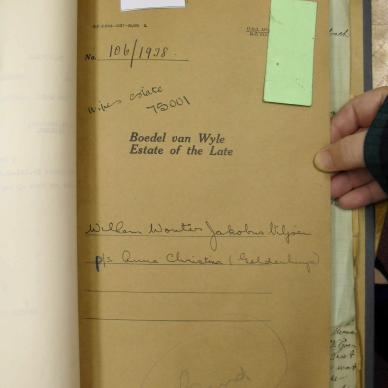 No. 106/1938
Wife's estate
75001
Boedel van Wyle
Estate of the Late
Willem Wouter Jakobus Viljoen
p/s Anna Christina (Geldenhuys)